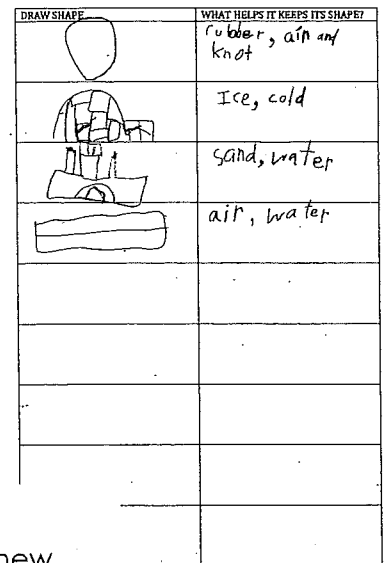 DRAW SHAPE
WHAT HELPS IT KEEPS ITS SHAPE?
rubber, air and
knot
Ice, cold
sand, water
air, water
new